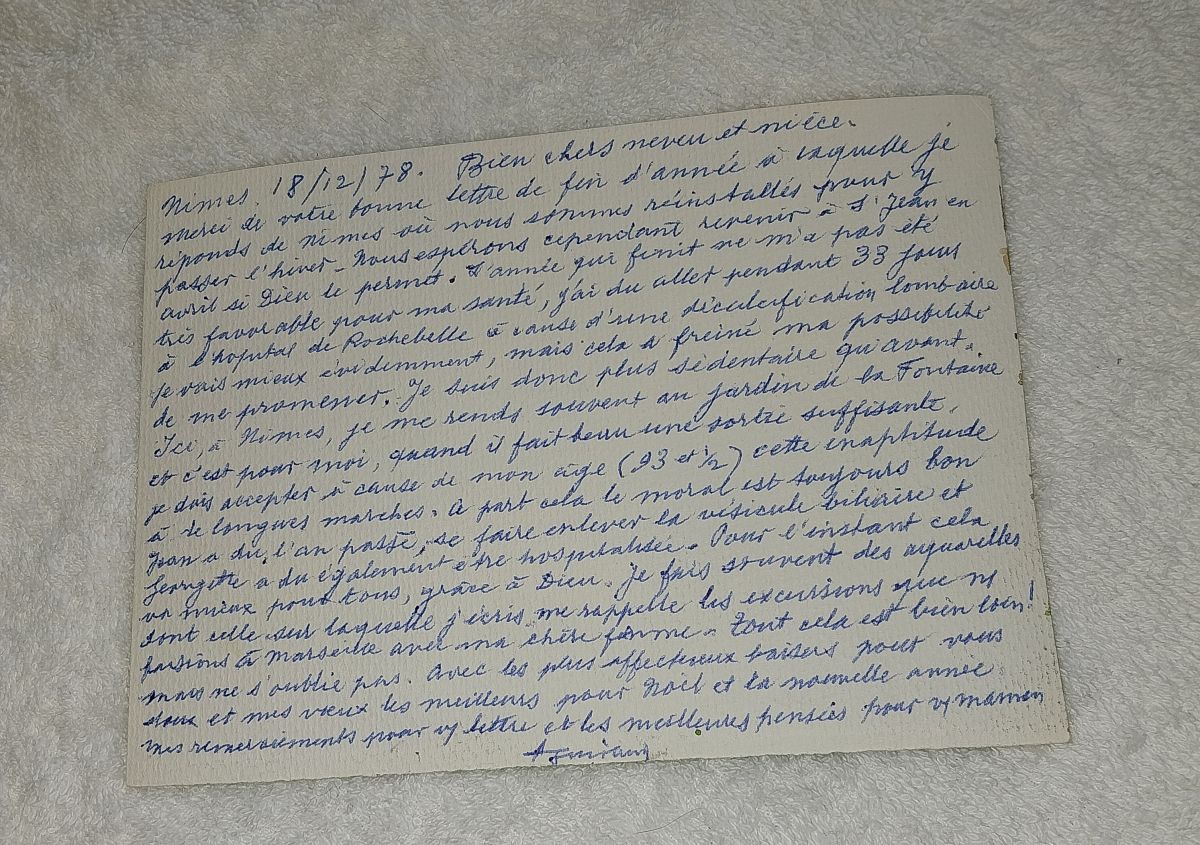 Nimes. 18/12/78. Bien chers neveu et nièce.
Merci de votre bonne lettre de fin d'année à laquelle je
réponds de Nimes où nous sommes réinstallés pour y
passer l'hiver - Nous espérons cependant revenir à St Jean en
avril si Dieu le permet. L'année qui finit ne m'a pas été
très favorable pour ma santé, j'ai du aller pendant 33 jours
à l'hôpital de Rochebelle à cause d'une décalcification lombaire
Je vais mieux évidemment, mais cela a freiné ma possibilité
de me promener. Je suis donc plus sédentaire qu'avant.
Ici, à Nimes, je me rends souvent au jardin de la Fontaine
et c'est pour moi, quand il fait beau une sortie suffisante.
je dois accepter à cause de mon âge (93 et 1/2) cette inaptitude
à de longues marches. A part cela le moral est toujours bon
Jean a dû, l'an passé, se faire enlever la vésicule biliaire et
Georgette a du également être hospitalisée. Pour l'instant cela
va mieux pour tous, grâce à Dieu. Je fais souvent des aquarelles
dont celle sur laquelle j'écris me rappelle les excursions que ns
faisions à Marseille avec ma chère femme. Tout cela est bien loin!
mais ne s'oublie pas. Avec les plus affectueux baisers pour vous
deux et mes vœux les meilleurs pour Noël et la nouvelle année
mes remerciements pour vj lettre et les meilleures pensées pour vj maman